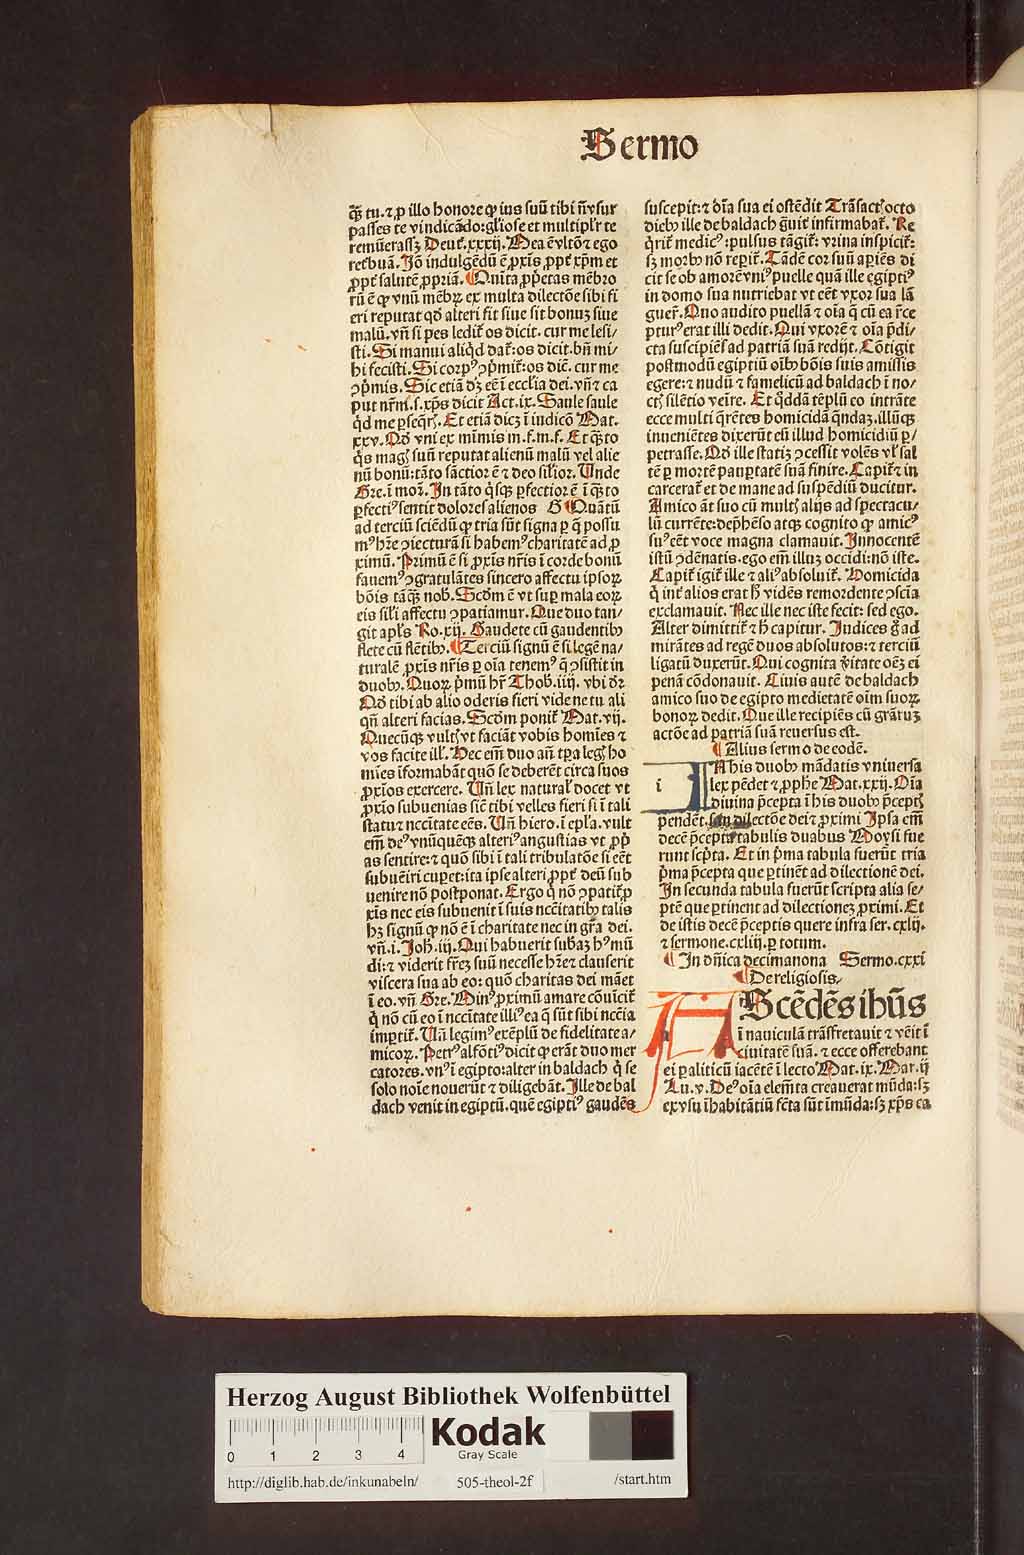 Sermo
q̃ꝫ tu. ⁊ ꝓ illo honore ꝙ ius suũ tibi ñ vsur
passes te vindicãdo: gl'iose et multipl'r te
remũerassꝫ Deut̃. xxxij. Mea ẽ vltõ ⁊ ego
ret̃buã. Jõ indulgẽdũ ẽ ꝓxĩs ꝓpt̃ xp̃m et
ꝓpt̃ salutẽ ꝓpriã. ¶ Quita ꝓp̃etas mẽbro
rũ ẽ ꝙ vnũ mẽbꝝ ex multa dilectõe sibi fi
eri reputat qd̃ alteri fit siue sit bonuꝫ siue
malũ. vñ si pes ledit̃ os dicit. cur me lesi/
sti. Si manui aliq̃d dat̃: os dicit. bñ mi/
hi fecisti. Si corpꝰ ꝯp̃mit̃: os dic̃. cur me
ꝯp̃mis. Sic etiã dꝫ eẽ ĩ eccl'ia dei. vñ ⁊ ca
put nr̃m .s. xp̃s dicit Act. ix. Saule saule
q̃d me ꝑseq̃rꝭ. Et etiã dicꝫ ĩ iudicõ Mat.
xxv. Qd̃ vni ex mimis m. f. m. f. Et q̃ꝫto
q̃s magꝭ suũ reputat alienũ malũ vel alie
nũ bonũ: tãto sãctior ẽ ⁊ deo sil'ior. Unde
Gre. ĩ moꝛ. In tãto q̃sqꝫ ꝑfectior ẽ ĩ q̃ꝫto
ꝑfectiꝰ sentit dolores alienos G ¶ Quãtũ
ad terciũ sciẽdũ ꝙ tria sũt signa ꝑ q̃ possu
mꝰ hr̃e ꝯiecturã si habemꝰ charitatẽ ad ꝓ
ximũ. Primũ ẽ si ꝓxĩs nr̃is ĩ corde bonũ
fauemꝰ ꝯgratulãtes sincero affectu ipsoꝝ
bõis tãqꝫ nob̃. Scd̃m ẽ vt suꝑ mala eoꝝ
eis sil'i affectu ꝯpatiamur. Que duo tan/
git apl's Ro. xij. Gaudete cũ gaudentibꝰ
flete cũ flẽtibꝰ. ¶ Terciũ signũ ẽ si legẽ na/
turalẽ ꝓxĩs nr̃is ꝑ oĩa tenemꝰ q̃ ꝯsistit in
duobꝰ. Quoꝝ p̃mũ hr̃ Thob. iiij. vbi dr̃
Qd̃ tibi ab alio oderis fieri vide ne tu ali
qñ alteri facias. Scd̃m ponit̃ Mat. vij.
Quecũqꝫ vultꝭ vt faciãt vobis homĩes ⁊
vos facite ill'. Hec em̃ duo añ tp̃a legꝭ ho
mĩes ĩformabãt quõ se deberẽt circa suos
ꝓxĩos exercere. Uñ lex natural' docet vt
ꝓxĩo subuenias sic̃ tibi velles fieri si ĩ tali
statu ⁊ nccĩtate eẽs. Uñ hiero. ĩ epl'a. vult
em̃ deꝰ vnũquẽqꝫ alteriꝰ angustias vt ꝓp̃
as sentire: ⁊ quõ sibi ĩ tali tribulatõe si eẽt
subuẽiri cuꝑet: ita ipse alteri ꝓpt̃ deũ sub
uenire nõ postponat. Ergo q̃ nõ ꝯpatit̃ ꝓ
xĩs nec eis subuenit ĩ suis nccĩtatibꝰ talis
hꝫ signũ ꝙ nõ ẽ ĩ charitate nec in gr̃a dei.
vñ .i. Joh. iij. Qui habuerit sub̃aꝫ hꝰ mũ
di: ⁊ viderit fr̃eꝫ suũ necesse hr̃e ⁊ clauserit
viscera sua ab eo: quõ charitas dei mãet
ĩ eo. vñ Gre. Minꝰ ꝓximũ amare cõuĩcit̃
q̃ nõ cũ eo ĩ nccĩtate illiꝰ ea q̃ sũt sibi nccĩa
imꝑtit̃. Uñ legimꝰ exẽplũ de fidelitate a/
micoꝝ. Petrꝰ alfõtiꝰ dicit ꝙ erãt duo mer
catores. vnꝰ ĩ egipto: alter in baldach q̃ se
solo noĩe nouerũt ⁊ diligebãt. Ille de bal
dach venit in egiptũ. quẽ egiptiꝰ gaudẽs
suscepit: ⁊ oĩa sua ei ostẽdit Trãsactꝭ octo
diebꝰ ille de baldach g̃uit̃ infirmabat̃. Re
q̃rit̃ medicꝰ: pulsus tãgit̃: vrina inspicit̃:
sꝫ morbꝰ nõ reꝑit̃. Tãdẽ cor suũ aꝑiẽs di
cit se ob amorẽ vniꝰ puelle quã ille egiptiꝰ
in domo sua nutriebat vt eẽt vxor sua lã
guer̃. Quo audito puellã ⁊ oĩa q̃ cũ ea r̃ce
pturꝰ erat illi dedit. Qui vxorẽ ⁊ oĩa p̃di/
cta suscipiẽs ad patriã suã redijt. Cõtigit
postmodũ egiptiũ oĩbꝰ bõis suis amissis
egere: ⁊ nudũ ⁊ famelicũ ad baldach ĩ no/
ctꝭ silẽtio veĩre. Et q̃ddã tẽplũ eo intrãte
ecce multi q̃rẽtes homicidã q̃ndaꝫ. illũcqꝫ
inueniẽtes dixerũt eũ illud homicidiũ ꝑ/
petrasse. Qd̃ ille statiꝫ ꝯcessit volẽs vl' sal
tẽ ꝑ mortẽ pauꝑtatẽ suã finire. Capit̃ ⁊ in
carcerat̃ et de mane ad suspẽdiũ ducitur.
Amico ãt suo cũ multꝭ alijs ad spectacu/
lũ currẽte: dep̃hẽso atqꝫ cognito ꝙ amicꝰ
suꝰ eẽt voce magna clamauit. Innocentẽ
istũ ꝯdẽnatis. ego em̃ illuꝫ occidi: nõ iste.
Capit̃ igit̃ ille ⁊ aliꝰ absoluit̃. Homicida
q̃ int̃ alios erat h̃ vidẽs remordente ꝯscĩa
exclamauit. Nec ille nec iste fecit: sed ego.
Alter dimittit̃ ⁊ h̃ capitur. Iudices g̃ ad
mirãtes ad regẽ duos absolutos: ⁊ terciũ
ligatũ duxerũt. Qui cognita ṽitate oẽꝫ ei
penã cõdonauit. Ciuis autẽ de baldach
amico suo de egipto medietatẽ oĩm suoꝝ
bonoꝝ dedit. Que ille recipiẽs cũ gr̃aruꝫ
actõe ad patriã suã reuersus est.
¶ Alius sermo de eodẽ.
i N his duobꝰ mãdatis vniuersa
lex pẽdet ⁊ ꝓphe Mat. xxij. Oĩa
diuina p̃cepta ĩ his duobꝰ p̃ceptꝭ
pendẽt. dilectõe dei ⁊ ꝓximi Ipsa em̃
decẽ p̃cepta tabulis duabus Moysi fue
runt scp̃ta. Et in p̃ma tabula fuerũt tria
p̃ma p̃cepta que ꝑtinẽt ad dilectionẽ dei.
In secunda tabula fuerũt scripta alia se/
ptẽ que ꝑtinent ad dilectionez ꝓximi. Et
de istis decẽ p̃ceptis quere infra ser. cxlij.
⁊ sermone. cxliij. ꝑ totum.
¶ In dñica decimanona Sermo. cxxi
¶ De religiosis.
A Scẽdẽs ihũs
ĩ nauiculã trãsfretauit ⁊ vẽit ĩ
ciuitatẽ suã. ⁊ ecce offerebant
ei paliticũ iacẽtẽ ĩ lecto Mat. ix. Mar. ij
Lu. v. Deꝰ oĩa elem̃ta creauerat mũda: sꝫ
ex vsu ĩhabitãtiũ fc̃ta sũt ĩmũda: sꝫ xp̃s ca
Herzog August Bibliothek Wolfenbüttel
0 1 2 3 4
Kodak
Gray Scale
http://diglib.hab.de/inkunabeln/ 505-theol-2f /start.htm